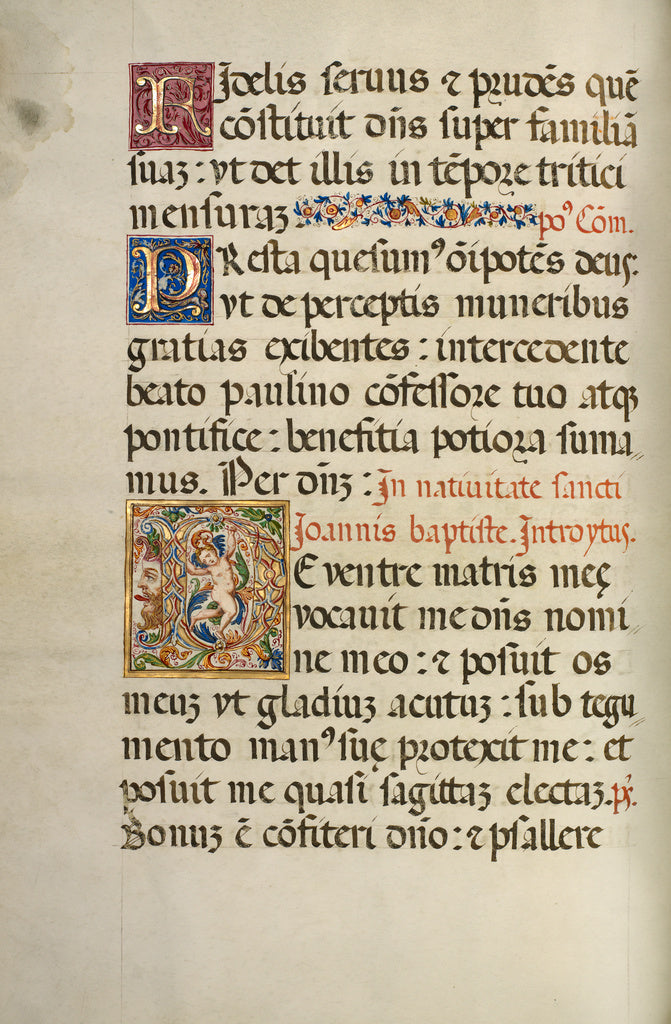 FIdelis seruus ⁊ prudēs quē
cōstituit dn̄s super familiā
suaȝ : vt det illis in tēpore tritici
mensuraȝ po⁹ Cōm.
PResta quesum⁹ oīpotēs deus.
vt de perceptis muneribus
gratias exibentes : intercedente
beato paulino cōfessore tuo atqꝫ
pontifice : benefitia potiora suma„
mus. Per dn̄ȝ : In natiuitate sancti
Ioannis baptiste. Introytus.
DE ventre matris meę
vocauit me dn̄s nomi„
ne meo : ⁊ posuit os
meuȝ vt gladiuȝ acutuȝ : sub tegu„
mento man⁹ suę protexit me : et
posuit me quasi sagittaȝ electaȝ. ps.
Bonuȝ ē cōfiteri dn̄o : ⁊ psallere